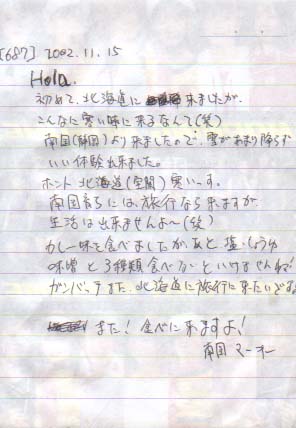 [687] 2002.11.15
Hola.
初めて、北海道に 来ましたが、
こんなに寒い時に来るなんて(笑)
南国(静岡)より来ましたので、雪があまり降らず
いい体験出来ました。
ホント北海道(空間)寒いーす。
南国育ちには、旅行なら来ますが、
生活は出来ませんよ〜(笑)
カレー味を食べましたが、あと塩・しょうゆ
味噌と3種類食べないといけませんね!
ガンバッテまた、北海道に旅行に来たいですね
また!食べに来ますよ!
南国 マーオー